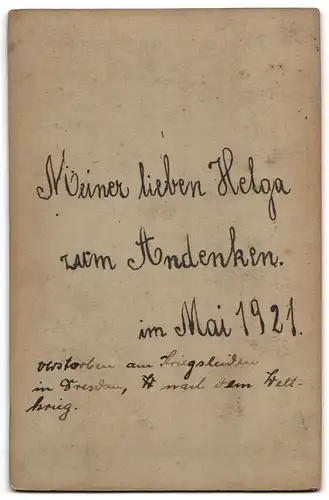 Meiner lieben Helga
zum Andenken.
im Mai 1921.
verstorben am Kriegsleiden
in Dresden, nach dem Welt-
krieg.